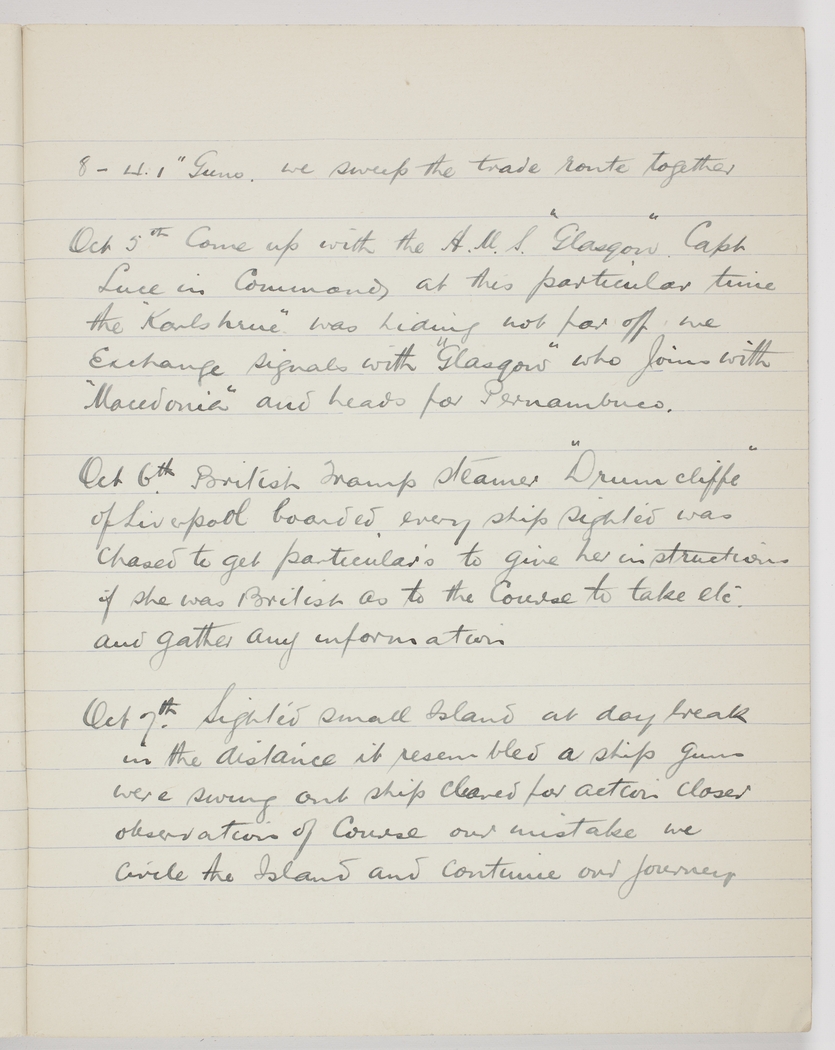 8 - 4.1" Guns. we sweep the trade route together
Oct 5th Come up with the H.M.S. "Glasgow". Capt
Luce in Command, at this particular time
the "Karlshrue" was hiding not far off. we
Exchange signals with "Glasgow" who Joins with
"Macedonia" and heads for Pernambuco.
Oct 6th. British Tramp steamer "Drumcliffe"
of Liverpool boarded every ship sighted was
Chased to get particular's to give her instructions
if she was British as to the Course to take etc.
and gather any information
Oct 7th. Sighted small Island at day break
in the distance it resembled a ship guns
were swung out ship cleared for action closer
observation of Course our mistake we
circle the Island and continue our Journey